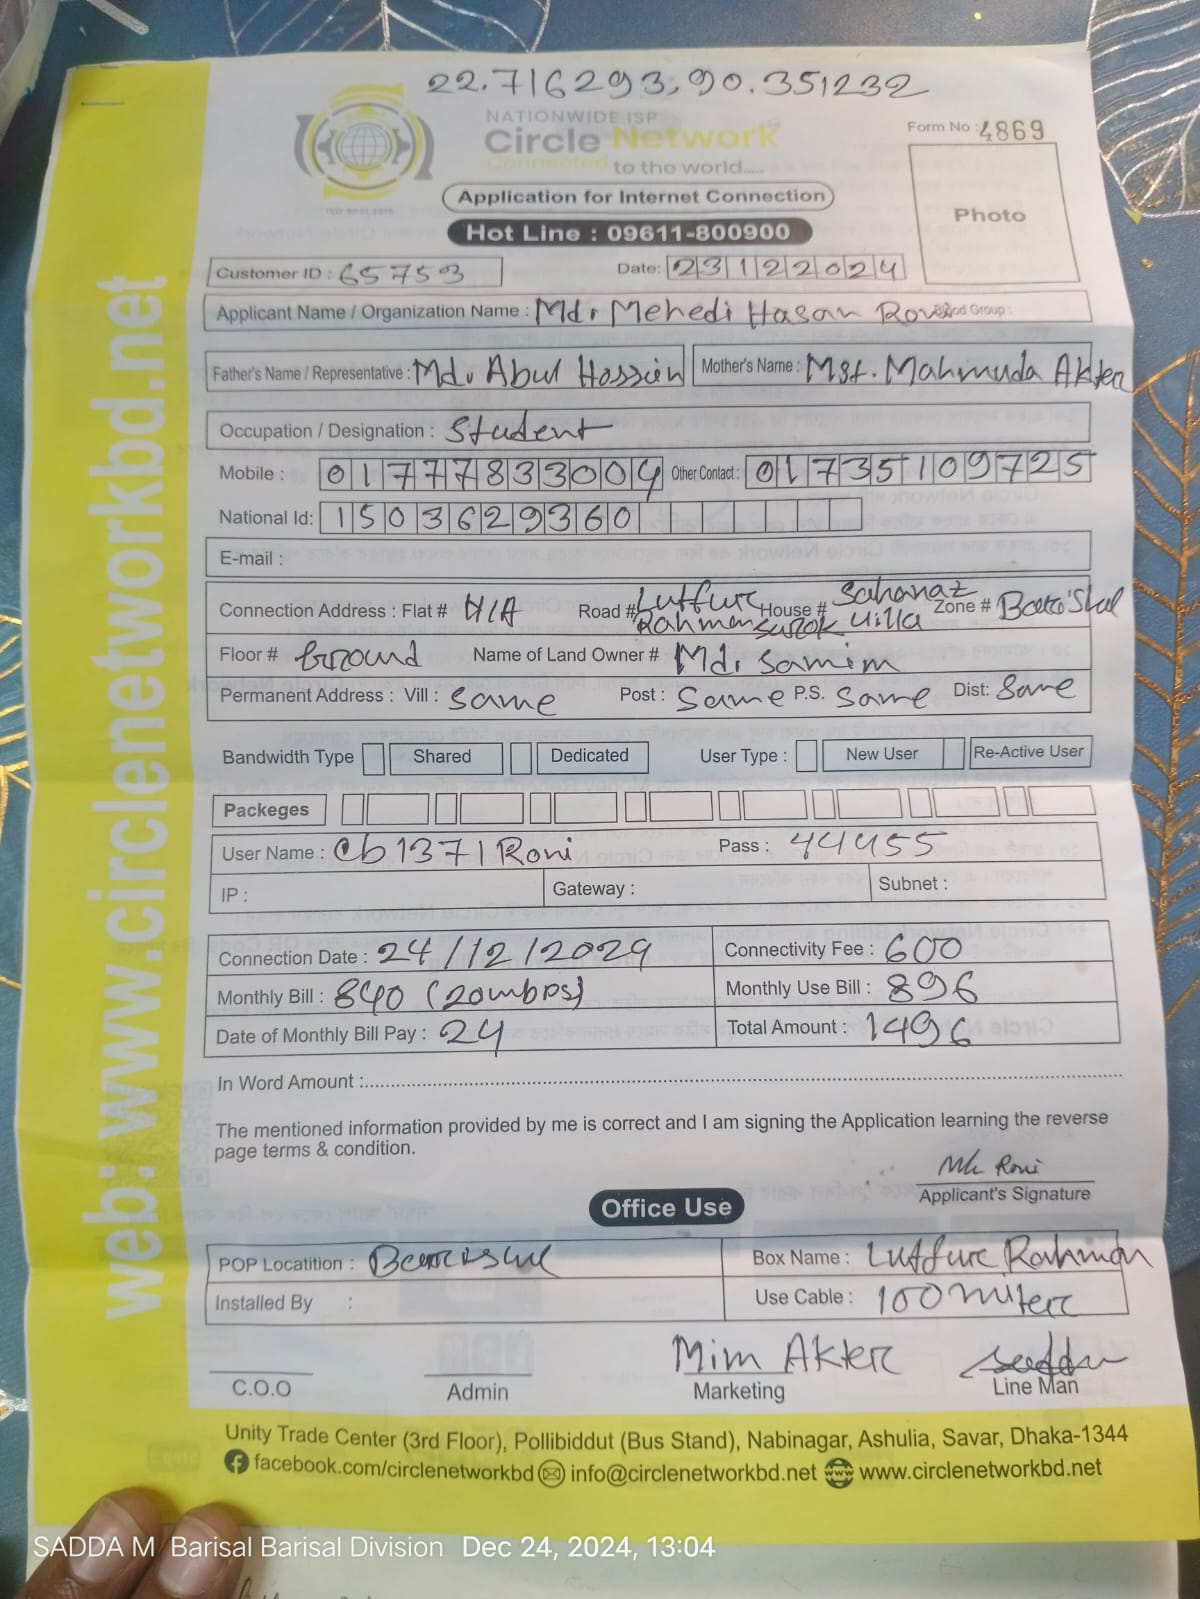 22.716293,90.351232
NATIONWIDE ISP
Circle Network
Connected to the world.....
Form No : 4869
Application for Internet Connection
Photo
Hot Line : 09611-800900
Customer ID : 65753
Date: 23122024
Applicant Name / Organization Name : Md. Mehedi Hasan Group :
Father's Name / Representative : Md. Abul Hossien Mother's Name : Mst. Mahmuda Akter
Occupation / Designation : Student
Mobile : 01777833004 Other Contact : 01735109725
National Id: 1503629360
E-mail :
Connection Address : Flat # N/A Road # Lutfur Rahman Surok House # Sahanaz Villa Zone #
Floor # Ground Name of Land Owner # Md. Samim
Permanent Address : Vill : Same Post : Same P.S. Same Dist: Same
Bandwidth Type Shared Dedicated User Type : New User Re-Active User
Packeges
User Name : cb1371Roni Pass : 44455
IP : Gateway : Subnet :
Connection Date : 24/12/2024 Connectivity Fee : 600
Monthly Bill : 840 (20mbps) Monthly Use Bill : 896
Date of Monthly Bill Pay : 24 Total Amount : 1496
In Word Amount :
The mentioned information provided by me is correct and I am signing the Application learning the reverse
page terms & condition.
Roni
Applicant's Signature
Office Use
POP Locatition : Box Name : Lutfur Rahman
Installed By : Use Cable : 100 miter
Mim Akter
C.O.O Admin Marketing Line Man
web: www.circlenetworkbd.net
Unity Trade Center (3rd Floor), Pollibiddut (Bus Stand), Nabinagar, Ashulia, Savar, Dhaka-1344
facebook.com/circlenetworkbd info@circlenetworkbd.net www.circlenetworkbd.net
SADDA M Barisal Barisal Division Dec 24, 2024, 13:04